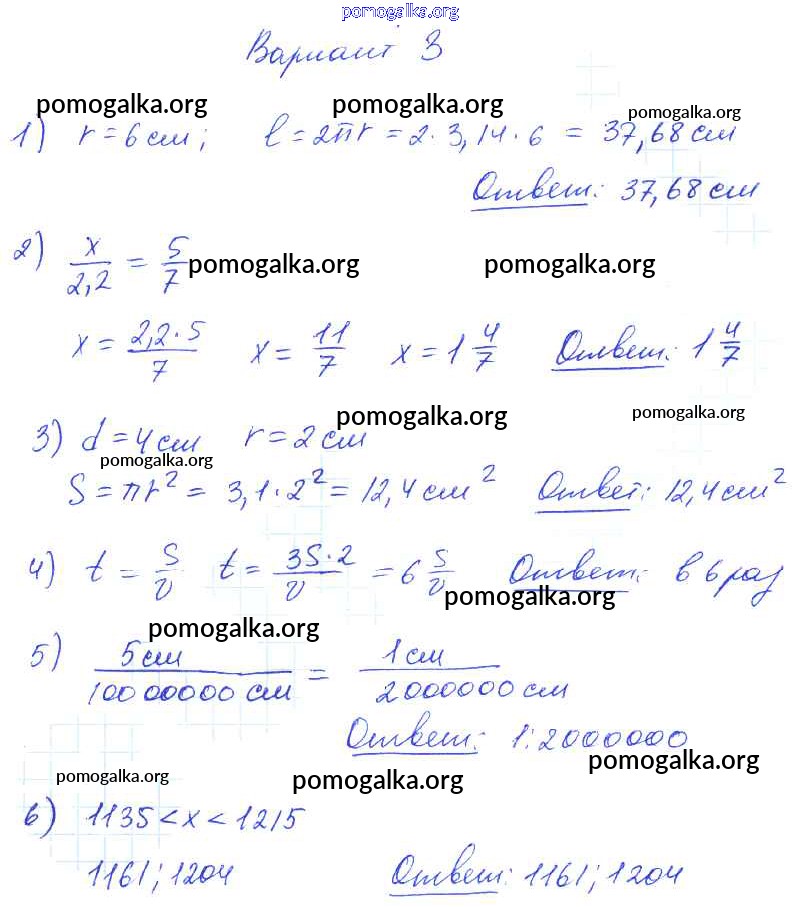 pomogalka.org
Вариант 3
pomogalka.org pomogalka.org pomogalka.org
1) r = 6 см; l = 2πr = 2 · 3,14 · 6 = 37,68 см
Ответ: 37,68 см
2) x/2,2 = 5/7 pomogalka.org pomogalka.org
x = 2,2·5/7 x = 11/7 x = 1 4/7 Ответ: 1 4/7
pomogalka.org pomogalka.org
3) d = 4 см r = 2 см
pomogalka.org
S = πr² = 3,1 · 2² = 12,4 см² Ответ: 12,4 см²
4) t = S/v t = 3S·2/v = 6 S/v Ответ: в 6 раз
pomogalka.org
pomogalka.org
5) 5 см/10000000 см = 1 см/2000000 см
Ответ: 1:2000000
pomogalka.org
pomogalka.org pomogalka.org
6) 1135 < x < 1215
1161; 1204 Ответ: 1161; 1204